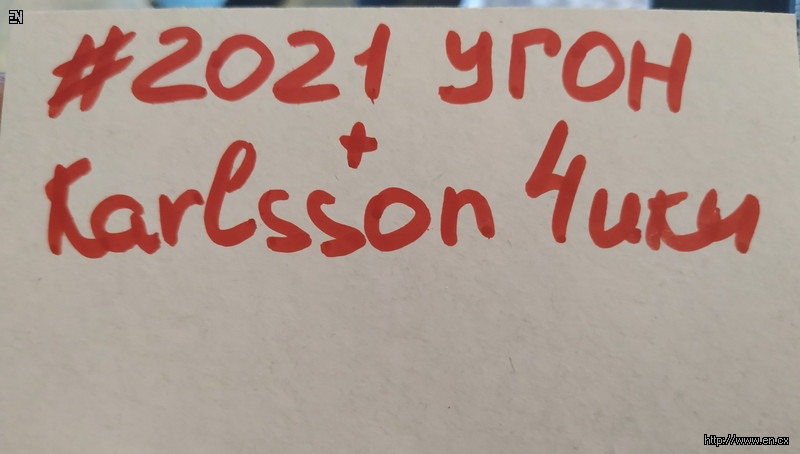 EN
#2021 угон
+
Karlsson 4ики
http://www.en.cx